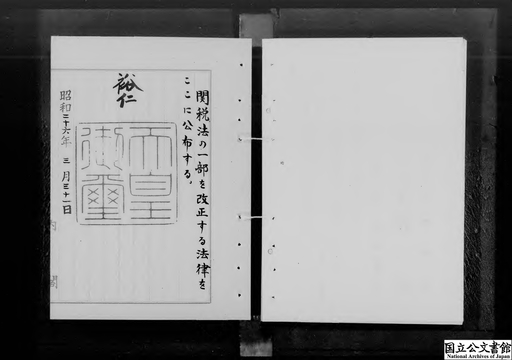 関税法の一部を改正する法律を
ここに公布する。
裕仁
天皇
御璽
昭和三十六年 三月三十一日
内閣
国立公文書館
National Archives of Japan